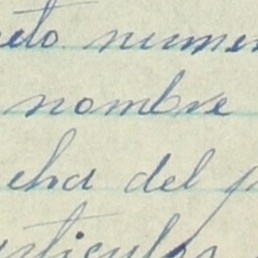 eto numer
nombre
cha del p
articulos